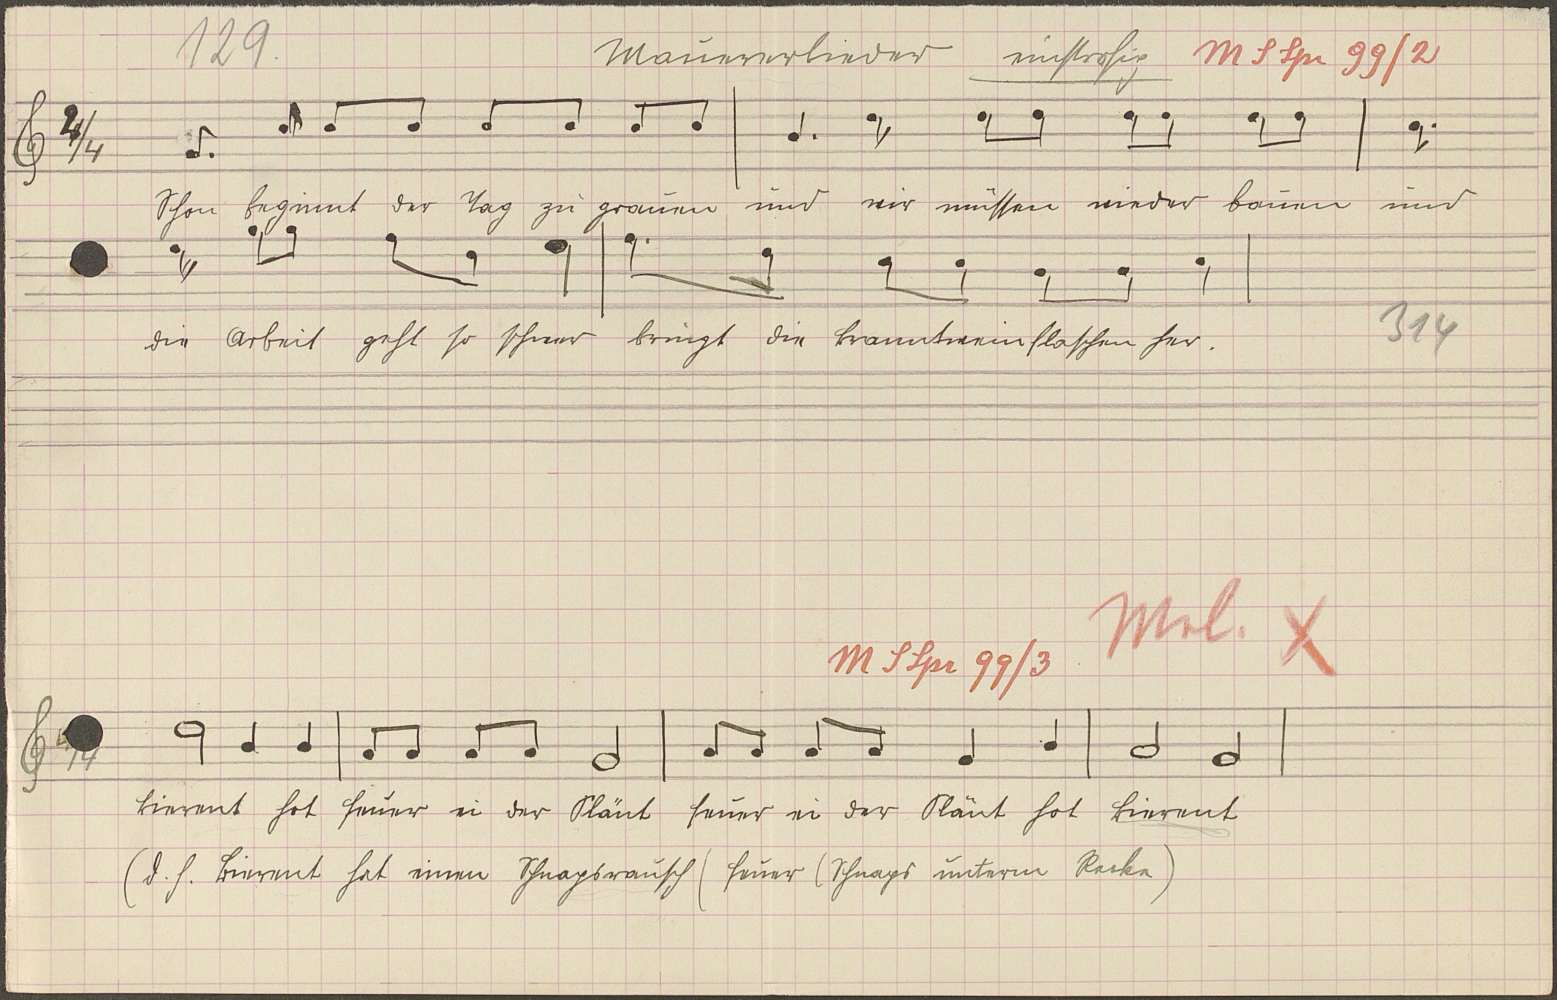 129. Maurerlieder einstrophig M S Spr 99/2
2/4
Schon beginnt der Tag zu grauen und wir müssen wieder bauen und
die Arbeit geht so schwer bringt die Branntweinflaschen her.
314
Mel. X
M S Spr 99/3
4/4
Bierent hot feuer ei der Plänt feuer ei der Plänt hot Bierent
(d. h. Bierent hat einen Schnapsrausch (feuer (Schnaps unterm Rocke)